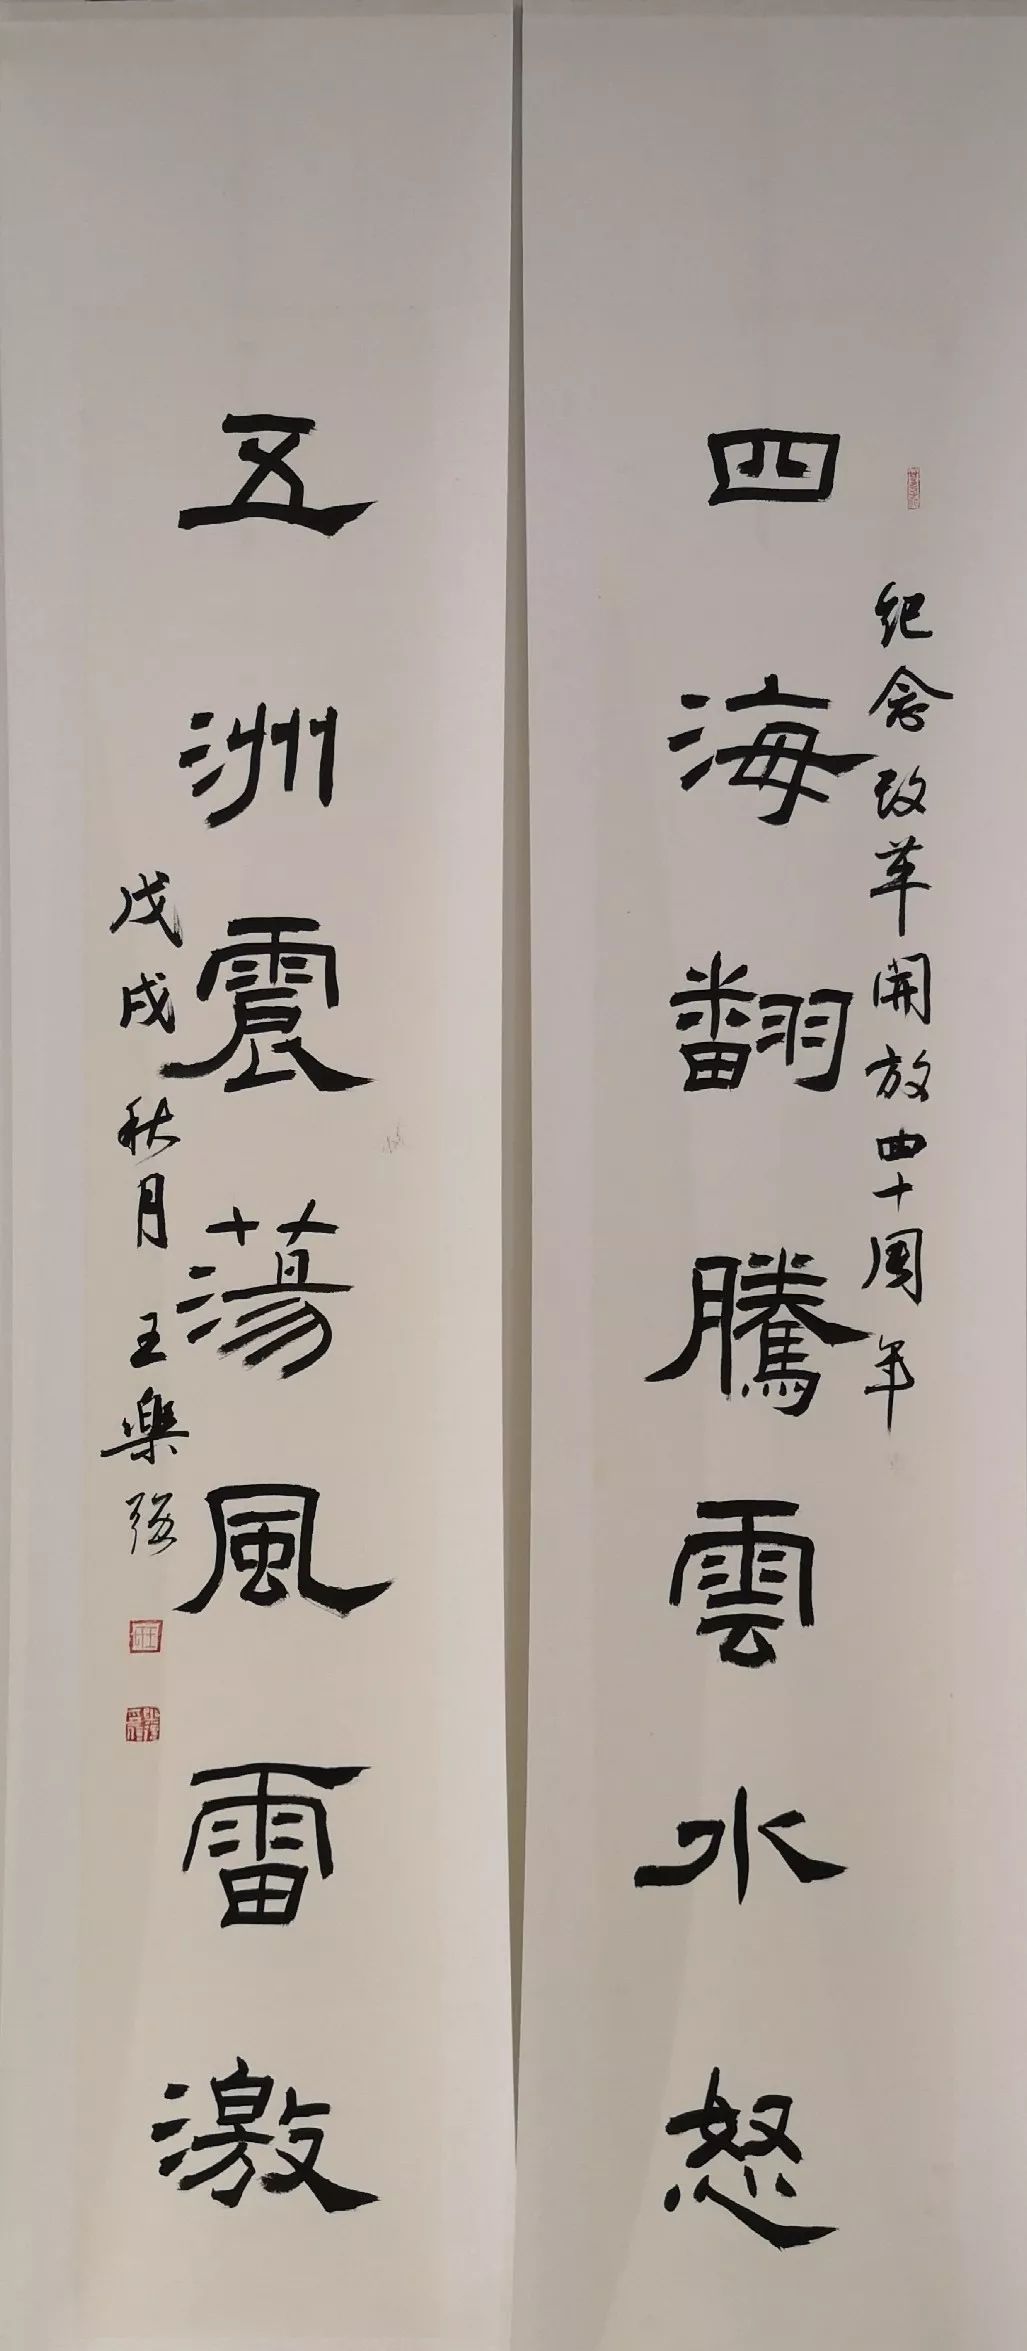 紀念改革開放四十周年
四海翻騰雲水怒
五洲震蕩風雷激
戊戌秋月王樂强